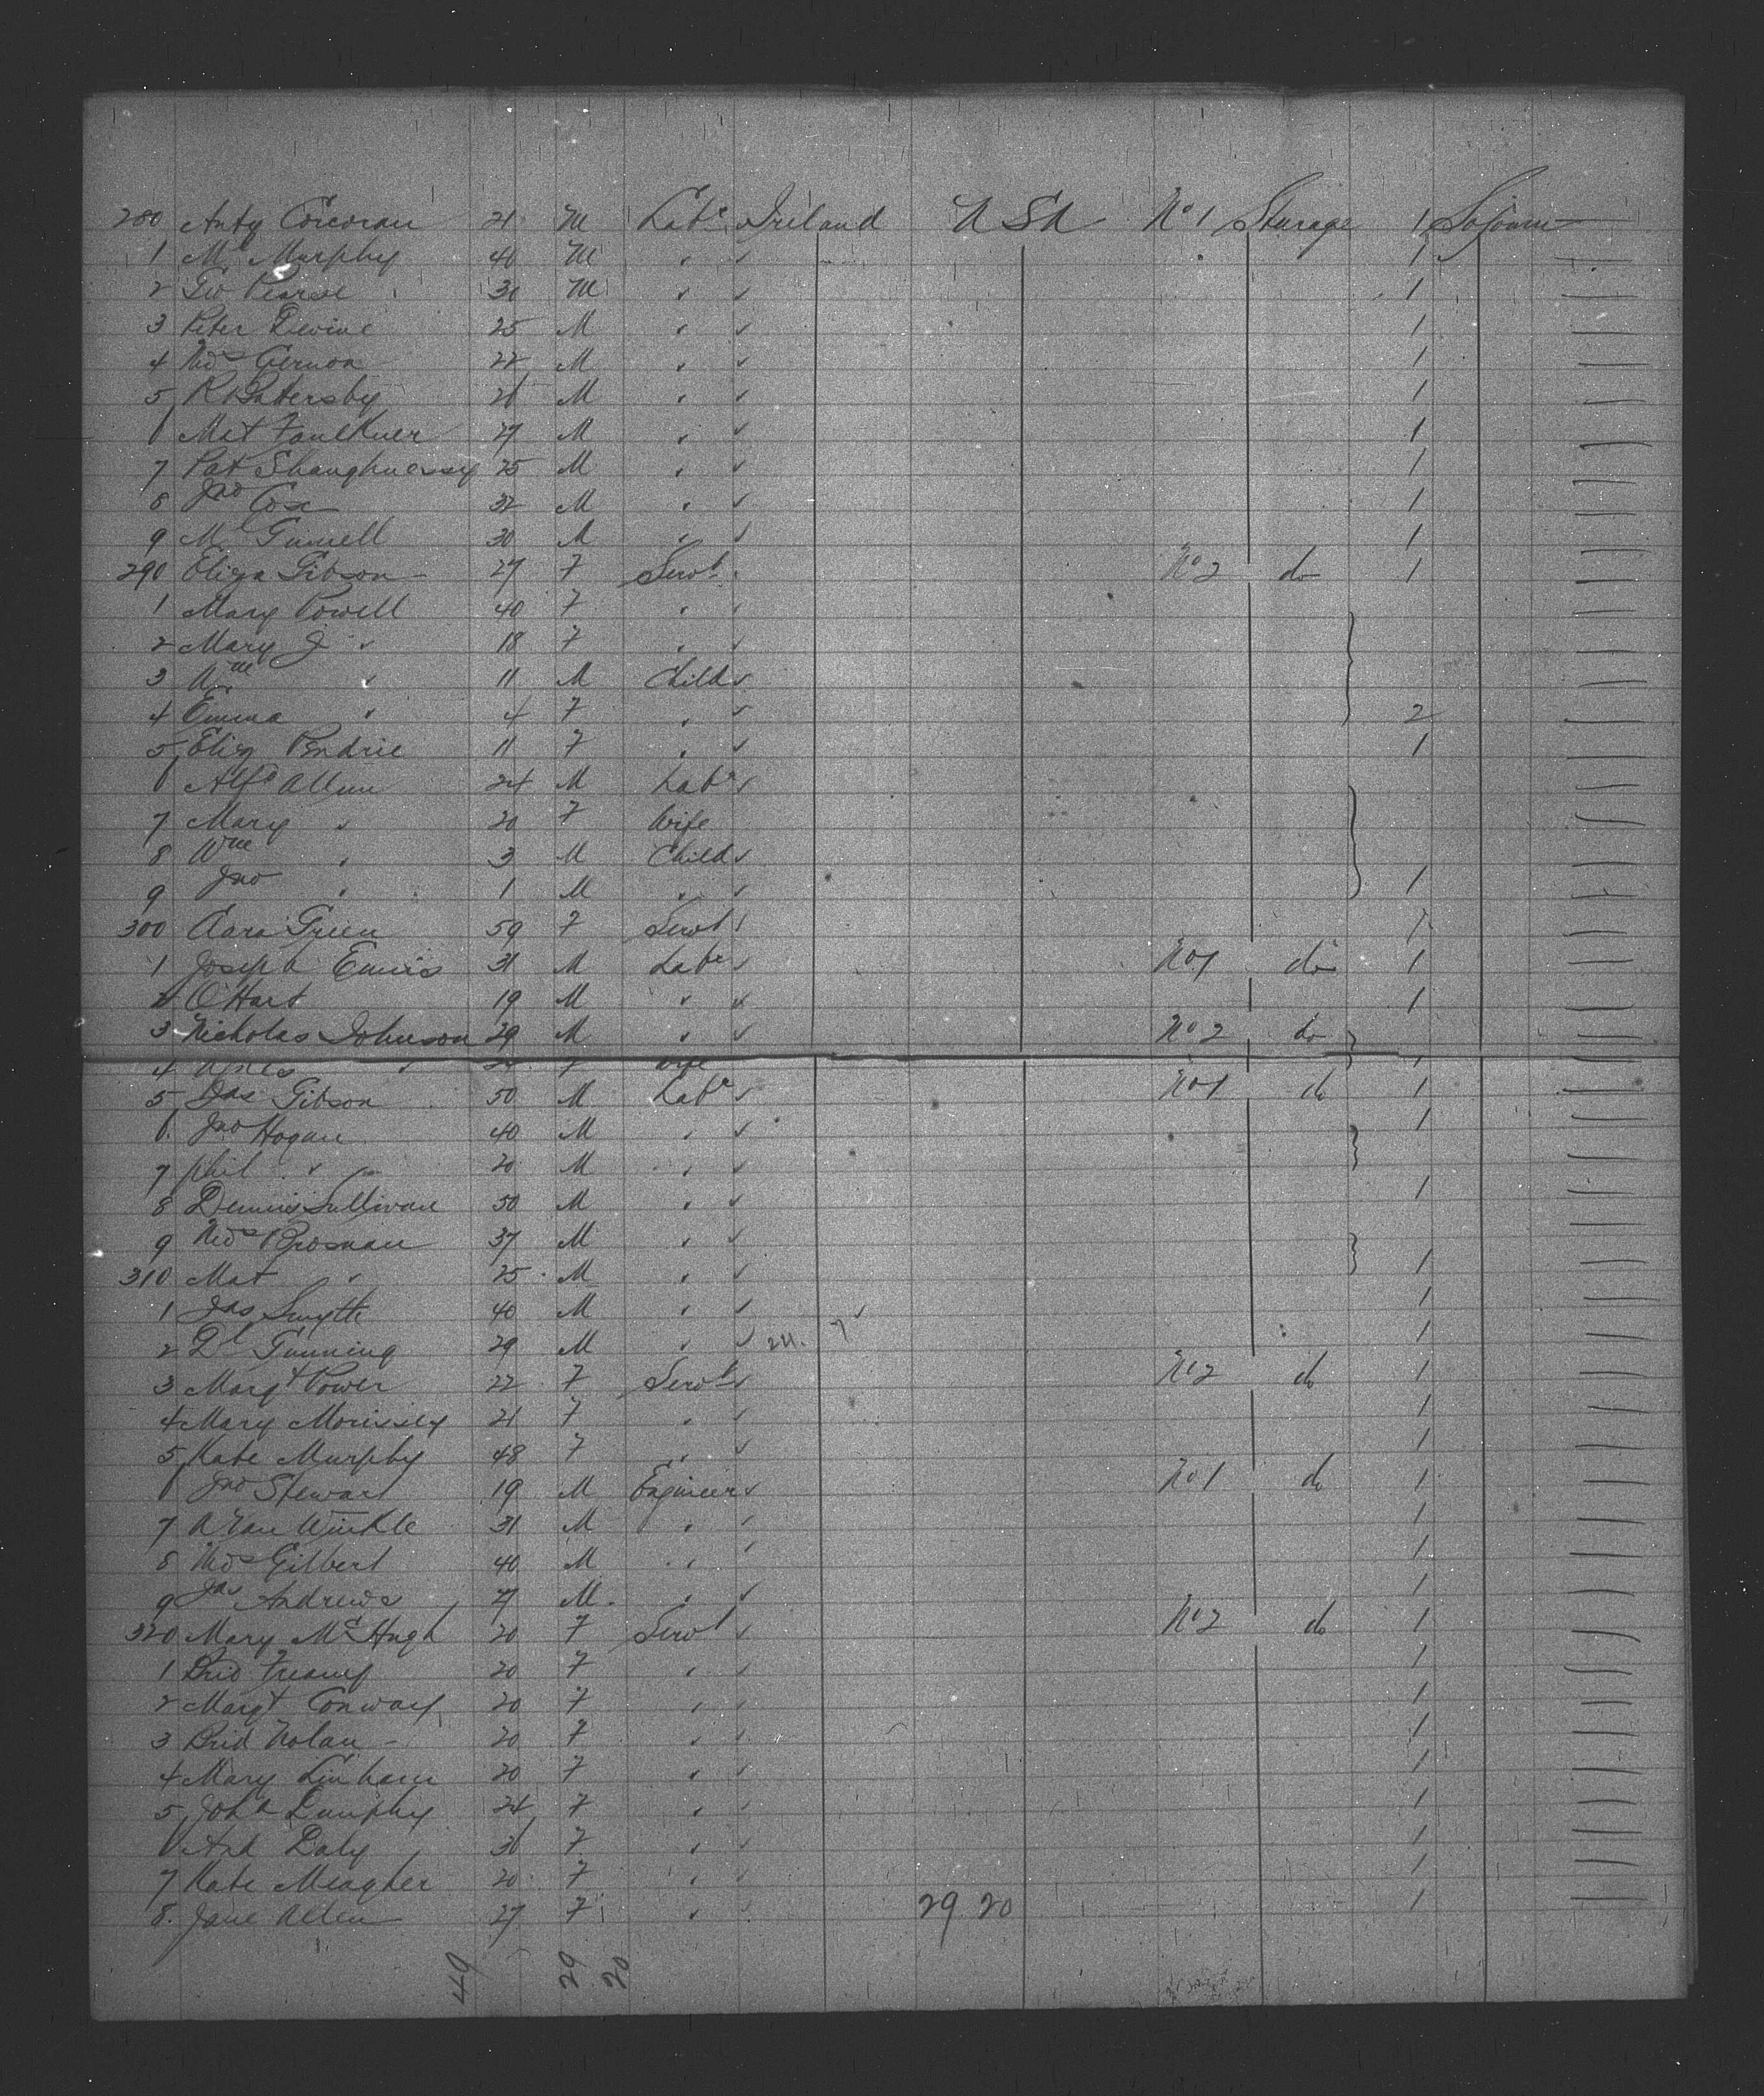 280 Anty Corcoran 21 M Labr Ireland USA No 1 Sturage 1 Sojourn
1 M Murphy 40 M " " 1
2 Geo Pearse 30 M " " 1
3 Peter Devine 25 M " " 1
4 Thos Gernon 22 M " " 1
5 R Battersby 21 M " " 1
6 Mat Faulkner 27 M " " 1
7 Pat Shaughnessy 25 M " " 1
8 Jno Cox 32 M " " 1
9 M 30 M " " 1
290 Eliza Gibson 27 F Servt " No 2 do 1
1 Mary Powell 40 F " "
2 Mary J " 18 F " "
3 Wm " 11 M Child "
4 Emma " 4 F " " 2
5 Eliza 11 F " " 1
6 Alfd Allen 24 M Labr "
7 Mary " 20 F Wife
8 Wm " 3 M Child "
9 Jno " 1 M " " 1
300 Green 59 F Servt " 1
1 Joseph 31 M Labr " No 1 do 1
2 O'Hart 19 M " " 1
3 Nicholas Johnson 29 M " " No 2 do
4 " F Wife 1
5 Jas Gibson 50 M Labr " No 1 do 1
6 Jno Hogan 40 M " " 1
7 Phil " 20 M " "
8 Dennis Sullivan 50 M " " 1
9 Thos Brosnan 37 M " "
310 Mat " 25 M " " 1
1 Jas Smyth 40 M " " 1
2 Dl Gunning 29 M " " 1
3 Margt Power 22 F Servt " No 2 do 1
4 Mary Morissey 21 F " " 1
5 Kate Murphy 48 F " " 1
6 Jno Stewart 19 M Engineer " No 1 do 1
7 A Van Winkle 31 M " " 1
8 Thos Gilbert 40 M " " 1
9 Jas Andrews M " " 1
320 Mary McHugh 20 F Servt " No 2 do 1
1 Brid 20 F " " 1
2 Margt Conway 20 F " " 1
3 Brid Nolan 20 F " " 1
4 Mary Linham 20 F " " 1
5 Joha Dunphy 24 F " " 1
6 Daly F " " 1
7 Kate Meagher 20 F " " 1
8 Jane Allen 27 F " " 29 20 1
49 29 20